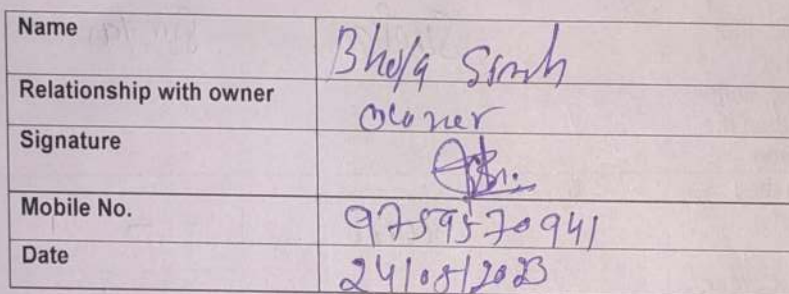 Name Bhola Singh
Relationship with owner Owner
Signature
Mobile No. 9759570941
Date 24/08/2023